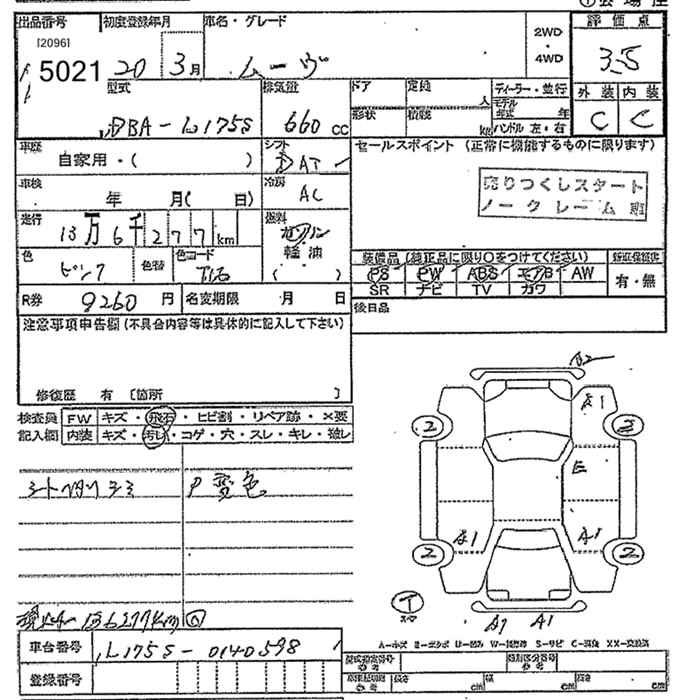 出品番号 初度登録年月 車名・グレード 2WD ・ 4WD 評価点
[2096]
5021 20年 3月 ムーヴ 3.5
型式 排気量 ドア 定員 人 ディーラー・並行 外装 内装
DBA-L175S 660 CC 形状 積載 kg モデル年式 年 ハンドル 左・右 C C
車歴 自家用・( ) シフト AT セールスポイント (正常に機能するものに限ります)
車検 年 月( 日) 冷房 AC
売りつくしスタート
ノークレーム 班
走行 13万6千277km 燃料 ガソリン 軽油 ( )
色 ピンク 色替 色コード T16
装備品 (純正品に限り○をつけてください) 新車保証書
PS PW ABS エアB AW 有・無
SR ナビ TV カワ
R券 9260 円 名変期限 月 日 後日品
注意事項申告欄 (不具合内容等は具体的に記入して下さい)
修復歴 有 [箇所 ]
検査員 FW キズ・飛石・ヒビ割・リペア跡・×要
記入欄 内装 キズ・汚れ・コゲ・穴・スレ・キレ・破レ
P変色
A2
A1
2 2
E
A1 A1
2 2
T
A1 A1
136277km
車台番号 L175S-0140598
登録番号
型式指定番号 類別区分番号
長さ cm 幅 cm 高さ cm